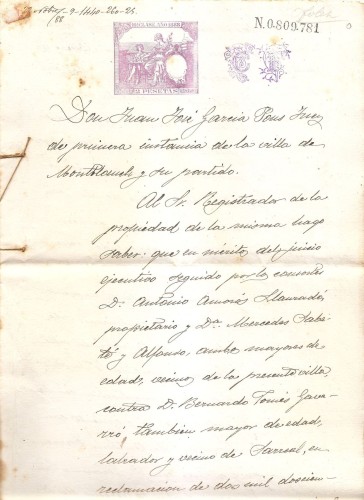 N.0.809.781
PESETAS
Don Juan José García Pons Juez
de primera instancia de la villa de
Montblanch y su partido.
Al Sr. Registrador de la
propiedad de la misma hago
saber: que en méritos del juicio
ejecutivo seguido por los consortes
Dn. Antonio Amorós Llauradó,
propietario y Da. Mercedes Saba-
té y Alfonso, ambos mayores de
edad, vecinos de la presente villa,
contra D. Bernardo Tomás Gava-
rró, tambien mayor de edad,
labrador y vecino de Sarreal, en
reclamacion de dos mil doscien-